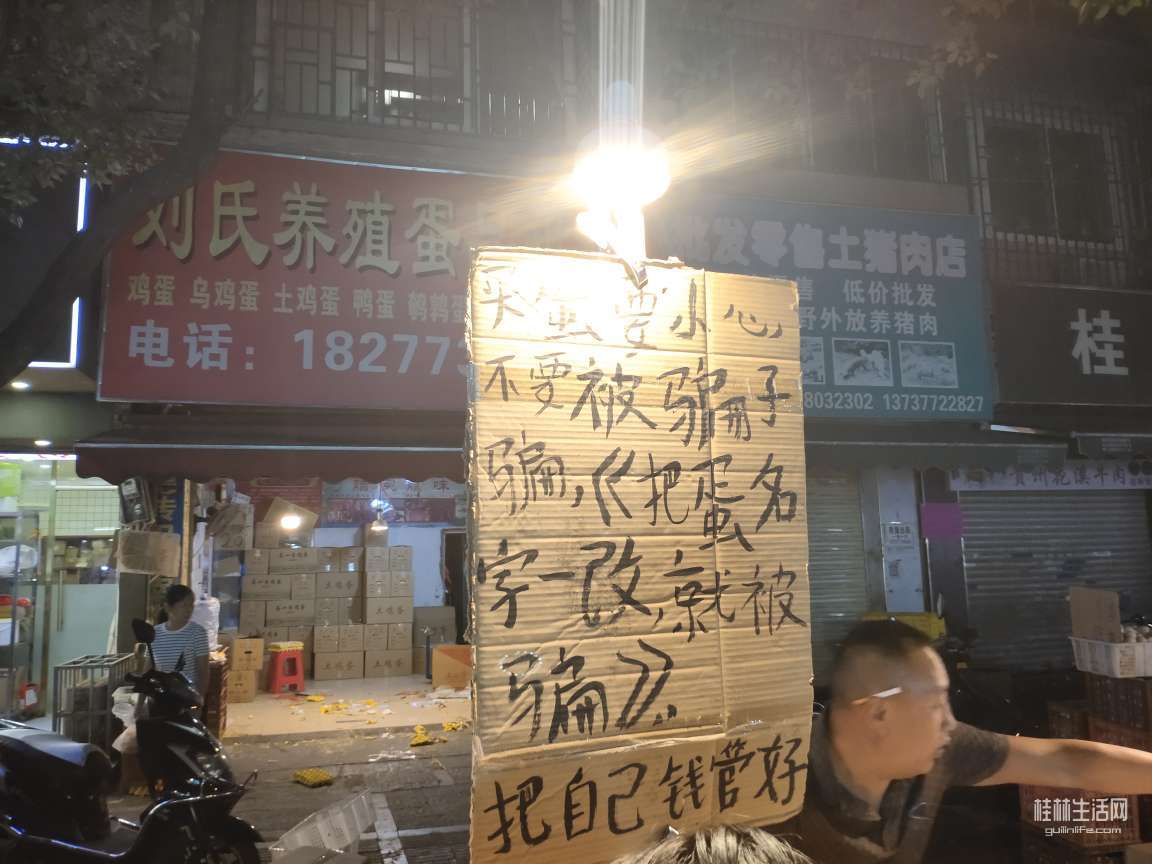 刘氏养殖蛋
鸡蛋 乌鸡蛋 土鸡蛋 鸭蛋 鹌鹑蛋
电话：182773
批发零售土猪肉店
售 低价批发
野外放养猪肉
8032302 13737722827
桂
贵州花溪牛肉
买蛋要小心,
不要被骗子
骗,《把蛋名
字一改,就被
骗》.
把自己钱管好
土鸡蛋
桂林生活网
guilinlife.com